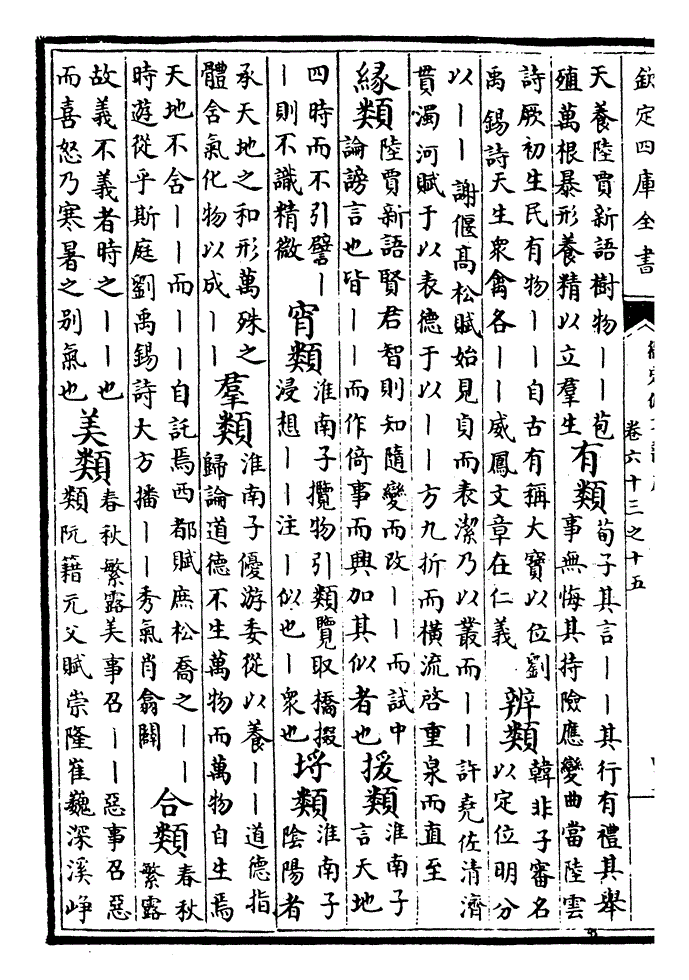 欽定四庫全書
卷六十三之十五
天養陸賈新語樹物丨丨苞
殖萬根暴形養精以立羣生
有類
荀子其言丨丨其行有禮其舉
事無悔其持險應變曲當陸雲
詩厥初生民有物丨丨自古有稱大寶以位劉
禹錫詩天生衆禽各丨丨威鳳文章在仁義
辨類
韓非子審名
以定位明分
以丨丨謝偃高松賦始見貞而表潔乃以叢而丨丨許堯佐清濟
貫濁河賦于以表德于以丨丨方九折而橫流啓重泉而直至
緣類
陸賈新語賢君智則知隨變而改丨丨而試中
論謗言也皆丨丨而作倚事而興加其似者也
援類
淮南子
言天地
四時而不引譬丨
丨則不識精微
宵類
淮南子攬物引類覽取撟掇
浸想丨丨注丨似也丨衆也
埒類
淮南子
陰陽者
承天地之和形萬殊之
體含氣化物以成丨丨
羣類
淮南子優游委從以養丨丨道德指
歸論道德不生萬物而萬物自生焉
天地不含丨丨而丨丨自託焉西都賦庶松喬之丨丨
時遊從乎斯庭劉禹錫詩大方播丨丨秀氣肖翕闢
合類
春秋
繁露
故義不義者時之丨丨也
而喜怒乃寒暑之別氣也
美類
春秋繁露美事召丨丨惡事召惡
類阮籍元父賦崇隆崔巍深溪崢